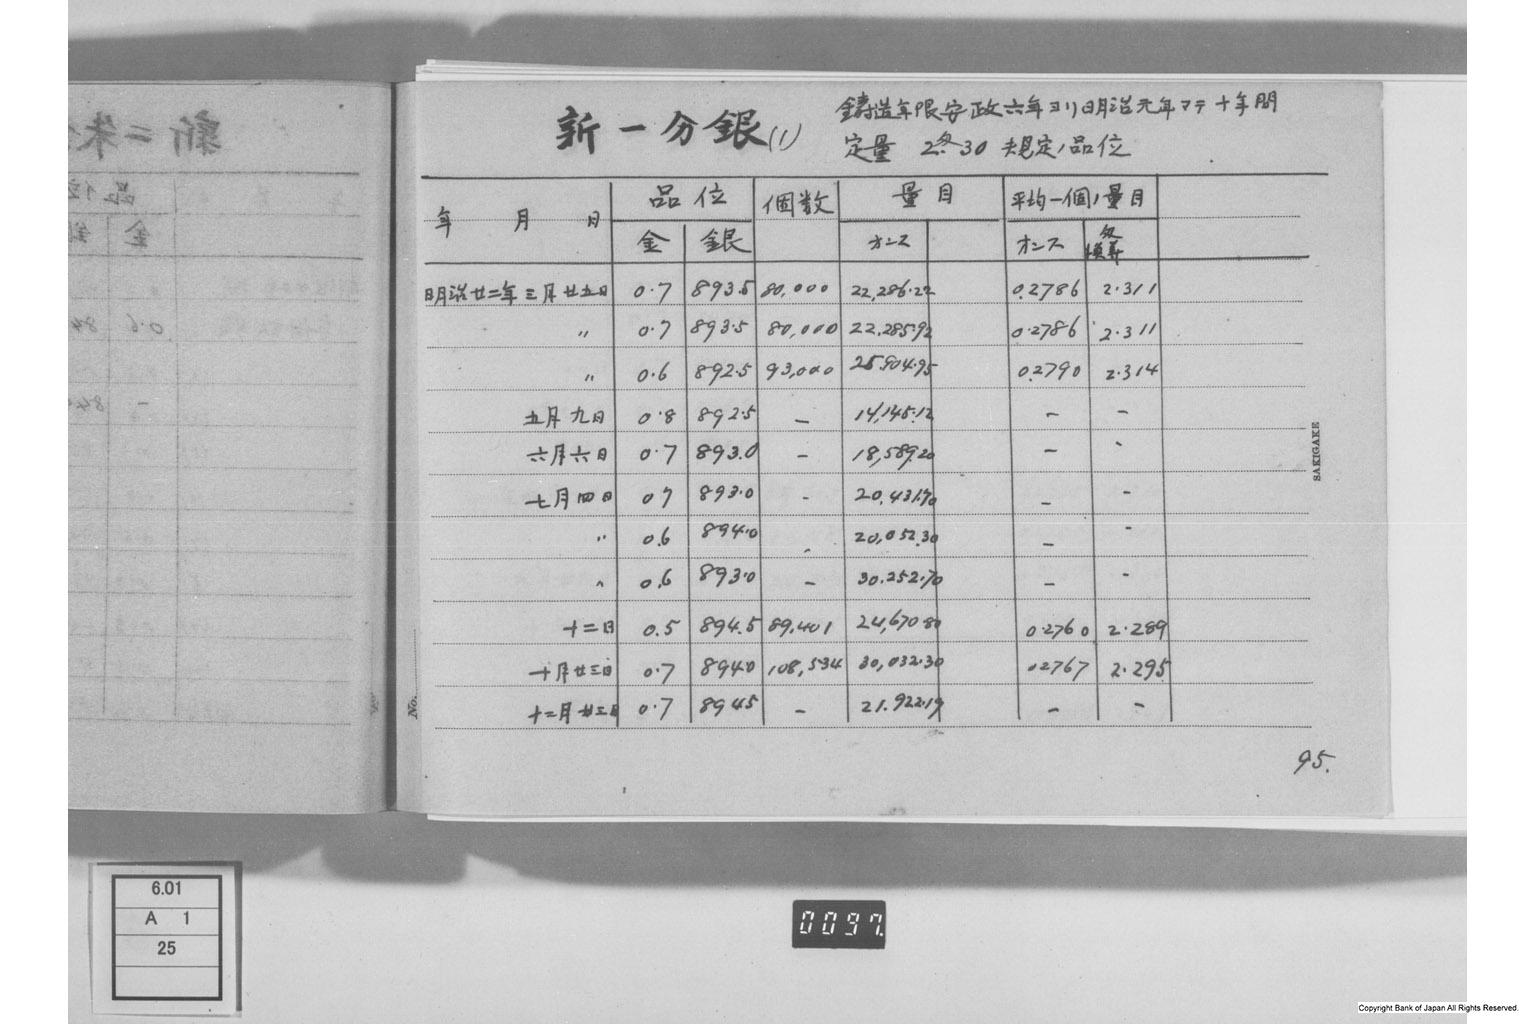 新一分銀(1)
鋳造年限安政六年ヨリ明治元年マテ十年間
定量 2匁30 規定ノ品位
年 月 日 品位 個数 量目 平均一個ノ量目
金 銀 オンス オンス 匁換算
明治廿二年三月廿五日 0.7 893.5 80,000 22,286.22 0.2786 2.311
〃 0.7 893.5 80,000 22,285.92 0.2786 2.311
〃 0.6 892.5 93,000 25,904.95 0.2790 2.314
五月九日 0.8 892.5 — 14,145.12 — —
六月六日 0.7 893.0 — 18,589.20 — -
七月四日 0.7 893.0 - 20,431.70 — -
〃 0.6 894.0 - 20,052.30 — -
〃 0.6 893.0 — 30,252.70 — -
十二日 0.5 894.5 89,401 24,670.80 0.2760 2.289
十月廿三日 0.7 894.0 108,534 30,032.30 0.2767 2.295
十二月廿三日 0.7 894.5 — 21,922.19 — -
SAKIGAKE
No.
95.
6.01
A 1
25
0097.
Copyright Bank of Japan All Rights Reserved.